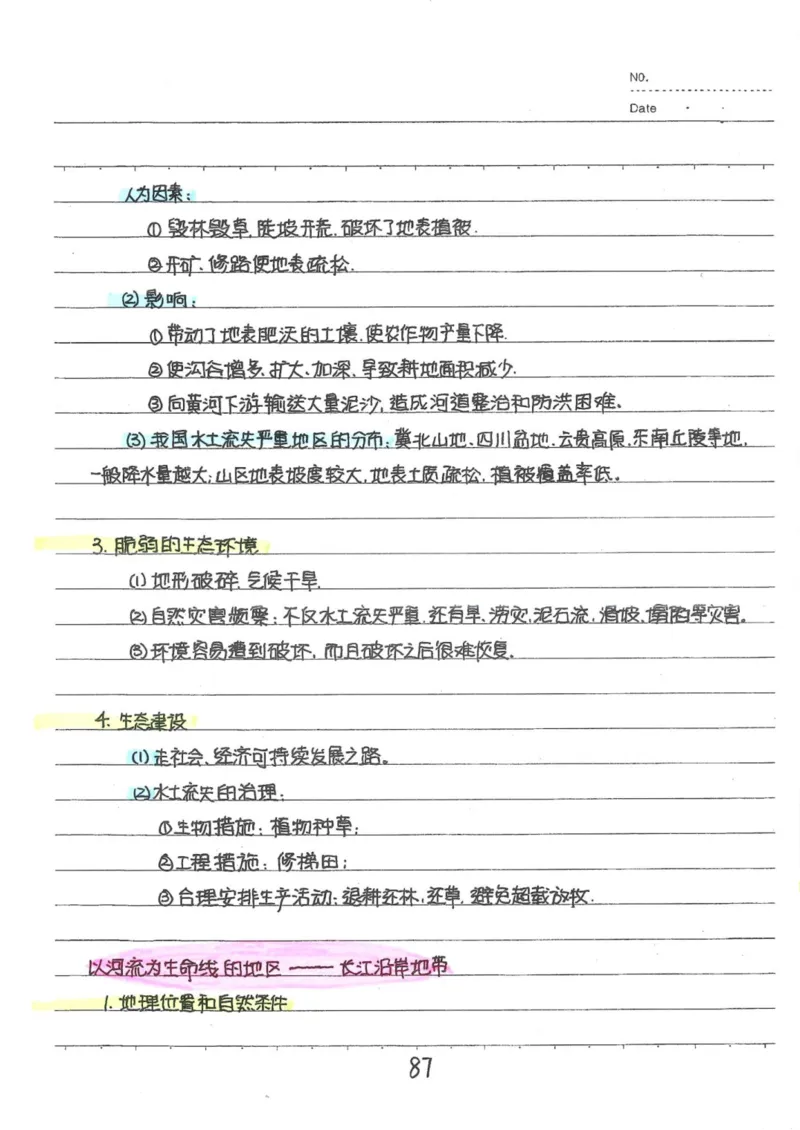 NO.
Date
人为因素:
①毁林毁草,陡坡开荒,破坏了地表植被.
②开矿、修路使地表疏松.
(2)影响:
①带动了地表肥沃的土壤,使农作物产量下降.
②使沟谷增多、扩大、加深、导致耕地面积减少.
③向黄河下游输送大量泥沙,造成河道整治和防洪困难。
(3)我国水土流失严重地区的分布:冀北山地、四川盆地、云贵高原、东南丘陵等地,
一般降水量越大;山区地表坡度较大,地表土质疏松,植被覆盖率低。
3.脆弱的生态环境
(1)地形破碎,气候干旱.
(2)自然灾害频繁:不仅水土流失严重,还有旱、涝灾,泥石流,滑坡、塌陷等灾害。
(3)环境容易遭到破坏,而且破坏之后很难恢复.
4.生态建设
(1)走社会、经济可持续发展之路。
(2)水土流失的治理:
①生物措施:植物种草;
②工程措施:修梯田;
③合理安排生产活动:退耕还林、还草,避免超载放牧.
以河流为生命线的地区——长江沿岸地带
1.地理位置和自然条件
87